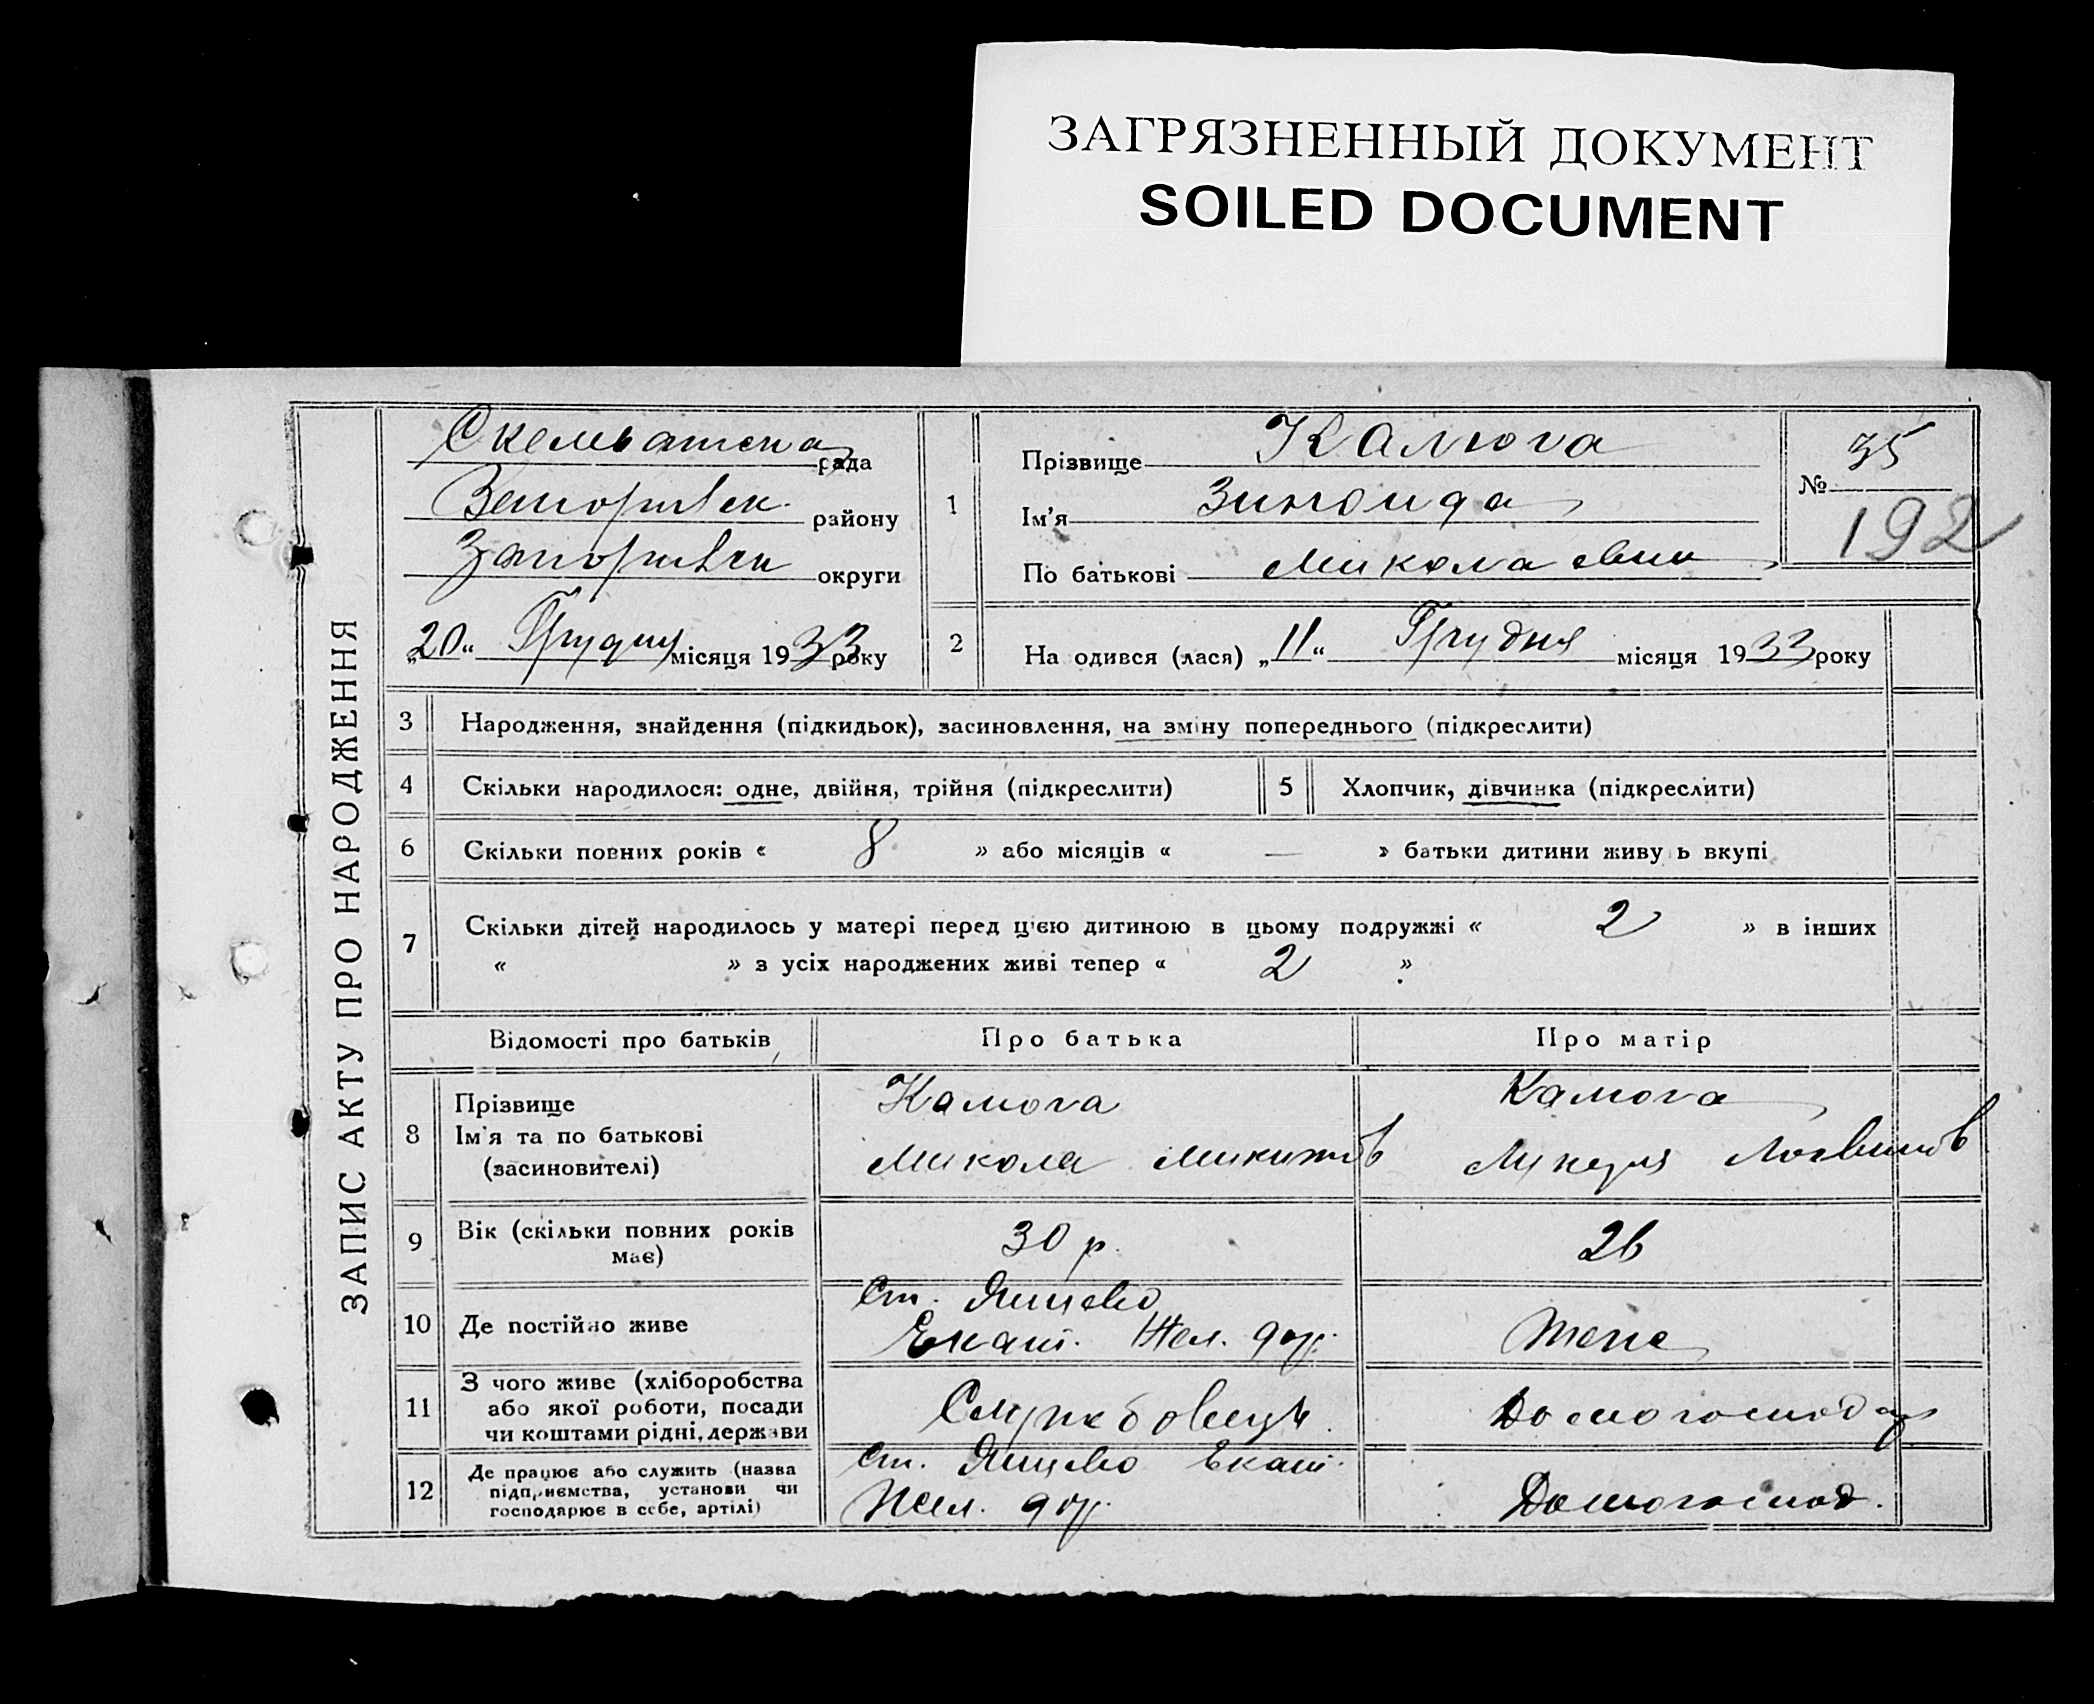 ЗАГРЯЗНЕННЫЙ ДОКУМЕНТ
SOILED DOCUMENT
ЗАПИС АКТУ ПРО НАРОДЖЕННЯ
рада
району
округи
„20“ Грудня місяця 1933 року
1
Прізвище Калюга
Ім'я Зиноида
По батькові Миколаевна
№ 35
192
2
На одився (лася) „11“ Грудня місяця 1933 року
3 Народження, знайдення (підкидьок), засиновлення, на зміну попереднього (підкреслити)
4 Скільки народилося: одне, двійня, трійня (підкреслити)
5 Хлопчик, дівчинка (підкреслити)
6 Скільки повних років « 8 » або місяців « — » батьки дитини живу ь вкупі
7 Скільки дітей народилось у матері перед цією дитиною в цьому подружжі « 2 » в інших
« » з усіх народжених живі тепер « 2 »
Відомості про батьків Про батька Про матір
8 Прізвище
Ім'я та по батькові
(засиновителі)
Калюга
Микола Микитов
Калюга
Логвинов
9 Вік (скільки повних років
має)
30 р.
26
10 Де постійно живе
Ст.
Екат. Жел. дор.
Теж
11 З чого живе (хліборобства
або якої роботи, посади
чи коштами рідні, держави
Службовець
Домогосподар
12 Де працює або служить (назва
підприємства, установи чи
господарює в себе, артілі)
Ст. Екат.
Жел. дор.
Домогоспод.